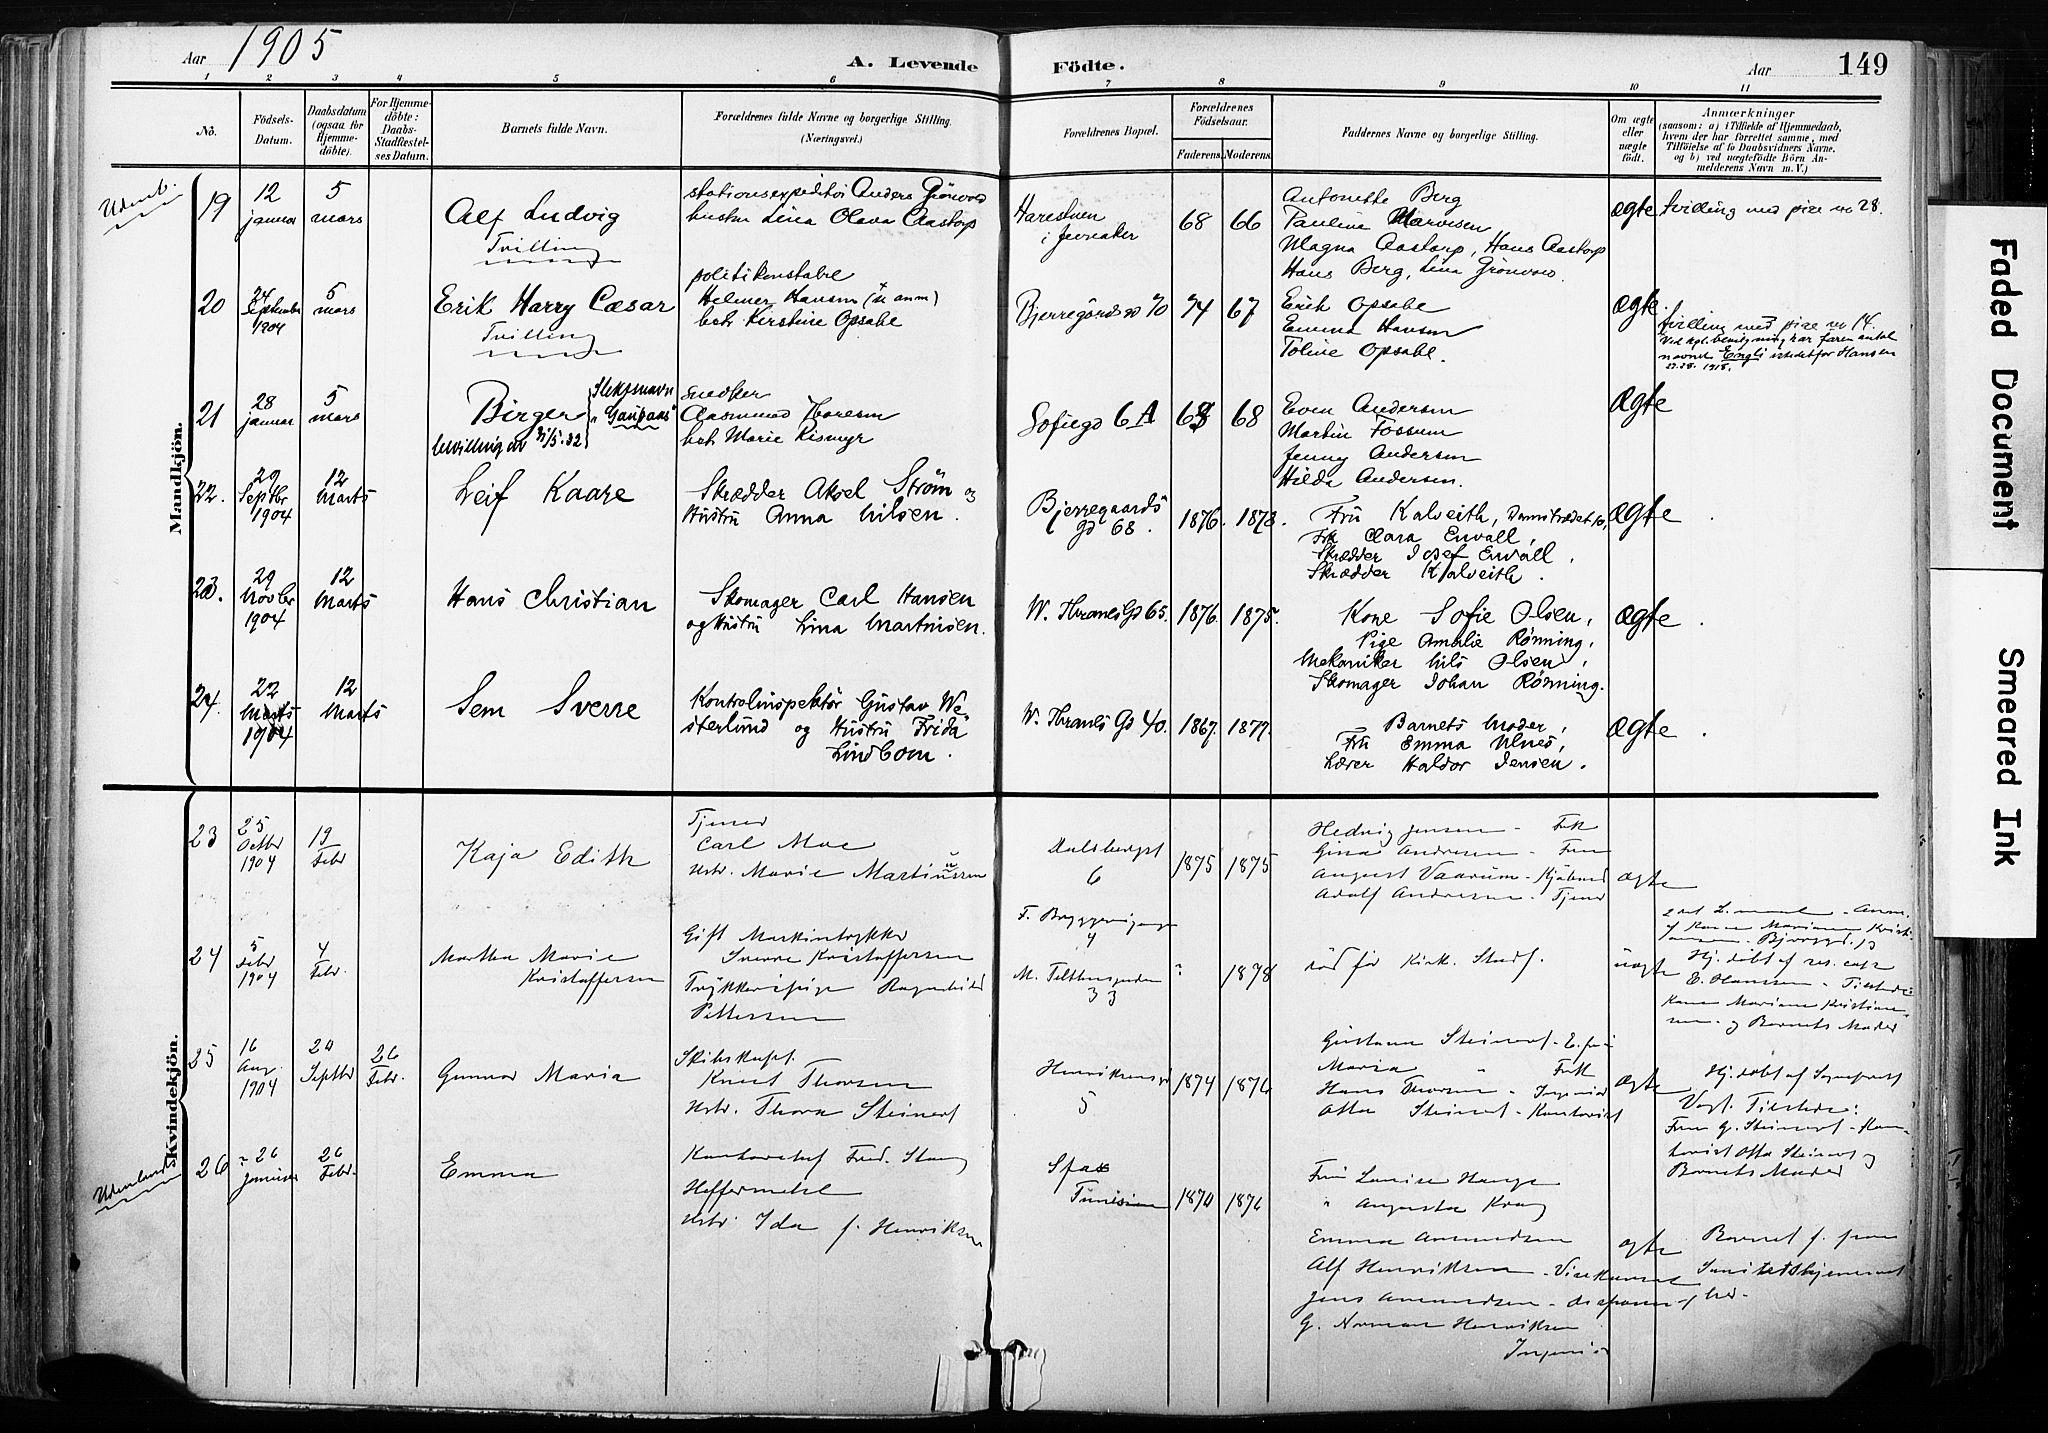 Aar 1905
A. Levende Födte.
Aar 149
1 2 3 4 5 6 7 8 9 10 11
No.
Födsels-Datum.
Daabsdatum (ogsaa for Hjemmedöbte).
For Hjemmedöbte: Daabs-Stadfæstelses Datum.
Barnets fulde Navn.
Forældrenes fulde Navne og borgerlige Stilling.
(Næringsvei.)
Forældrenes Bopæl.
Forældrenes Födselsaar.
Faderens. Moderens.
Faddernes Navne og borgerlige Stilling.
Om ægte eller uægte födt.
Anmærkninger
(saasom: a) i Tilfælde af Hjemmedaab,
hvem der har forrettet samme, med
Tilföielse af to Daabsvidners Navne,
og b) ved uægtefödte Börn An-
melderens Navn m. V.)
Mandkjön.
Udenb.
19
12 januar
5 mars
Alf Ludvig
Tvilling
stationsexpeditör Anders Grönvold
hustru Lina Olava Aastorp
Harestuen
i Jevnaker
68 66
Antonette Berg
Pauline
Magna Aastorp, Hans Aastorp
Hans Berg, Lina Grönvold.
ægte
tvilling med pike no 28.
20
24 September 1904
5 mars
Erik Harry Cæsar
Tvilling
politikonstabel
Helmer Hansen (x anm)
hstr Kirstine Opsahl
Bjerregårdsgd 70
74 67
Erik Opsahl
Emma Hansen
Toline Opsahl.
ægte.
tvilling med pike no 14.
Ved kgl. bevilgning har faren antat
navnet Engli istedetfor Hansen
1918.
21
28 januar
5 mars
Birger
Slektsnavn
"Gaupaas"
bevilling av 21/5.32
snedker
Aasmund Thoresen
hst. Marie Rismyr
Sofiegd 6A
68 68
Even Andersen
Martin Fossum
Jenny Andersen
Hilda Andersen.
ægte
22.
29 Septbr 1904
12 Marts
Leif Kaare
Skrædder Aksel Ström og
Hustru Anna Nilsen.
Bjerregaards
gd 68.
1876. 1878.
Frü Kalveith,
Frk Clara Envall,
Skrædder Josef Envall,
Skrædder Kalveith.
ægte
23.
29 Novbr 1904
12 Marts
Hans Christian
Skomager Carl Hansen
og Hustru Lina Martinsen.
W. Thranes Gd 65.
1876. 1875.
Kone Sofie Olsen,
Pige Amalie Rønning,
Mekaniker Nils Olsen,
Skomager Johan Rønning.
ægte.
24.
22 Marts 1904
12 Marts
Sem Sverre
Kontrolinspektör Gustav We-
sterlund og Hustru Frida
Lindbom.
W. Thranes Gd 40.
1867. 1877.
Barnets Moder,
Frü Emma Ulnes,
Lærer Haldor Jensen.
ægte.
Kvindekjön.
23
25 Octbr 1904
19 Febr
Kaja Edith
Tjener
Carl Moe
Hstr. Marie Martinussen
Dalsbergst
6
1875 1875
Hedvig Jensen - Frk
Gina Andresen - Frue
August Vaarum - Kjøbmd
Adolf Andresen - Tjener
ægte
24
5 Febr 1904
4 Febr.
Martha Marie
Kristoffersen
Gift Maskintrykker
Sverre Kristoffersen
Trykkeripige Ragnhild
Pettersen
F. Bryggerigangen
4
M. Telthusgaden
33
1878
død før Kirk. Stadf.
uægte
Kristi-
ansen.
Hj. døbt af res. cap
E. Hanssen - Tilstede:
Kone Mariane Kristian-
sen og Barnets Moder
25
16 Aug. 1904
20 Septbr
26 Febr.
Gunnor Maria
Skibskapt.
Knut Thorsen
Hstr. Thora Steinert
Henriksensgd
5
1874 1876
Gustava Steinert - E. frü
Maria " Frk
Hans Thorsen - Ingeniør
Otto Steinert - Kontorist
ægte
Hj. døbt af Sognepræst
Vogt. Tilstede:
Frue G. Steinert - Kon-
torist Otto Steinert og
Barnets Moder
Udenlands
26
26 Januar
26 Febr.
Emma
Kontorchef Fred. Stang
Heffermehl
Hstr. Ida f. Henriksen
Sfax
Tunisien
1870 1876
Frü Louise Hauge
" Augusta Krag
Emma Amundsen
Alf Henriksen - Vicekonsul
Jens Amundsen - disponent
G. Norman Henriksen
Ingeniør
ægte
Barnet f. paa
Sanitetshjemmet
her.
Faded Document
Smeared Ink